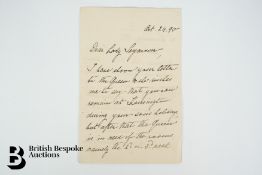 Oct. 24. 90
Dear Lady Seymour,
I have shown your letter
to the Queen & she wishes
me to say that you can
remain at
during your sons holidays
but after that the Queen
is in need of the rooms
British Bespoke
Auctions